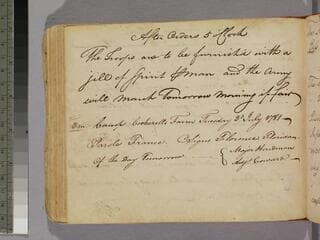 After Orders 5 oClock
The Troops are to be furnish'd with a
jill of Spirit P Man and the Army
will March Tomorrow Morning if fair
Camp Cockerells Farm Tuesday 3d July 1781
Parole France. Cosigns Florence
Of the Day Tomorrow Major Hindman